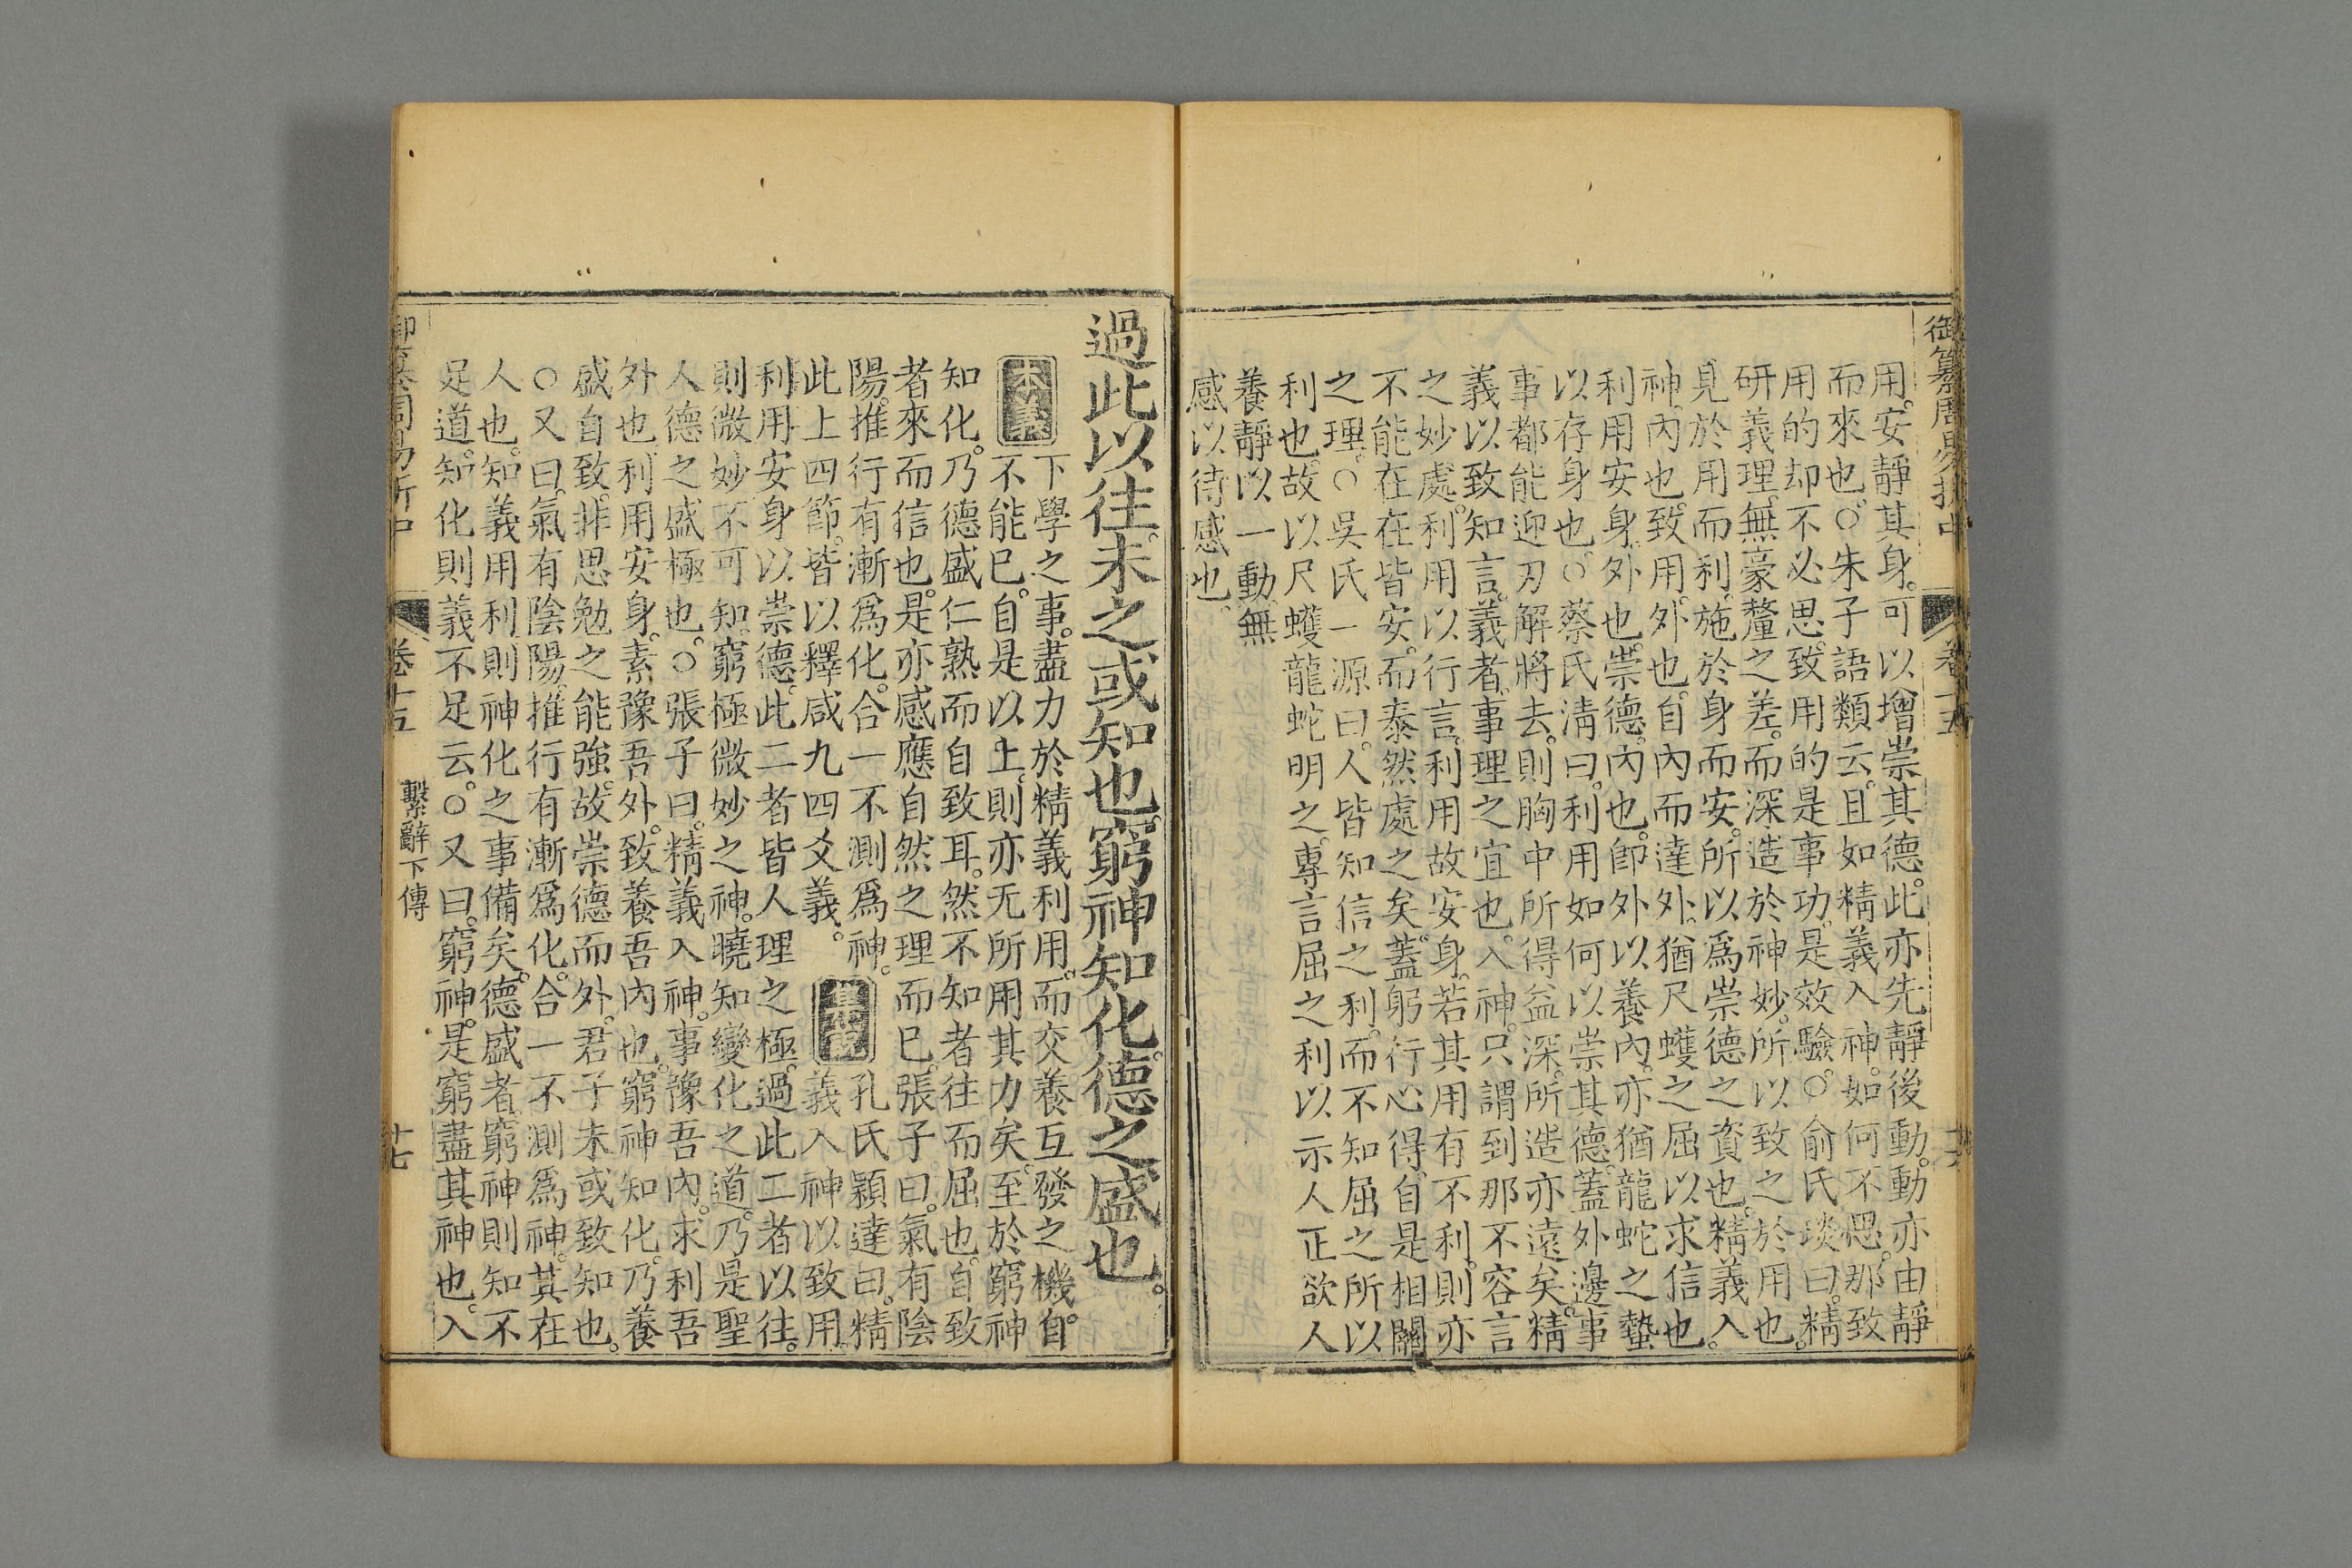 御纂周易折中
卷十五
十六
用。安靜其身。可以增崇其德。此亦先靜後動。動亦由靜
而來也。○朱子語類云。且如精義入神。如何不思。那致
用的却不必思。致用的是事功。是效驗。○俞氏琰曰。精
研義理。無豪釐之差。而深造於神妙。所以致之於用也。
見於用而利。施於身而安。所以爲崇德之資也。精義入
神。內也。致用。外也。自內而達外。猶尺蠖之屈以求信也。
利用安身。外也。崇德。內也。卽外以養內。亦猶龍蛇之蟄
以存身也。○蔡氏淸曰。利用如何以崇其德。蓋外邊事
事都能迎刃解將去。則胸中所得益深。所造亦遠矣。精
義以致知言。義者。事理之宜也。入神。只謂到那不容言
之妙處。利用以行言。利用故安身。若其用有不利。則亦
不能在在皆安。而泰然處之矣。蓋躬行心得。自是相關
之理。○吳氏一源曰。人皆知信之利。而不知屈之所以
利也。故以尺蠖龍蛇明之。專言屈之利以示人正欲人
養靜以一動。無
感以待感也。
過此以往。未之或知也。窮神知化。德之盛也。
本義
下學之事。盡力於精義利用。而交養互發之機。自
不能已。自是以上。則亦无所用其力矣。至於窮神
知化。乃德盛仁熟而自致耳。然不知者往而屈也。自致
者來而信也。是亦感應自然之理而已。張子曰。氣有陰
陽。推行有漸爲化。合一不測爲神。
集說
孔氏穎達曰。精
此上四節。皆以釋咸九四爻義。
義入神以致用。
利用安身以崇德。此二者皆人理之極。過此二者以往。
則微妙不可知。窮極微妙之神。曉知變化之道。乃是聖
人德之盛極也。○張子曰。精義入神。事豫吾內。求利吾
外也。利用安身。素豫吾外。致養吾內也。窮神知化。乃養
盛自致。非思勉之能強。故崇德而外。君子未或致知也。
○又曰。氣有陰陽。推行有漸爲化。合一不測爲神。其在
人也。知義用利。則神化之事備矣。德盛者。窮神則知不
足道。知化則義不足云。○又曰。窮神。是窮盡其神也。入
御纂周易折中
卷十五
繫辭下傳
十七